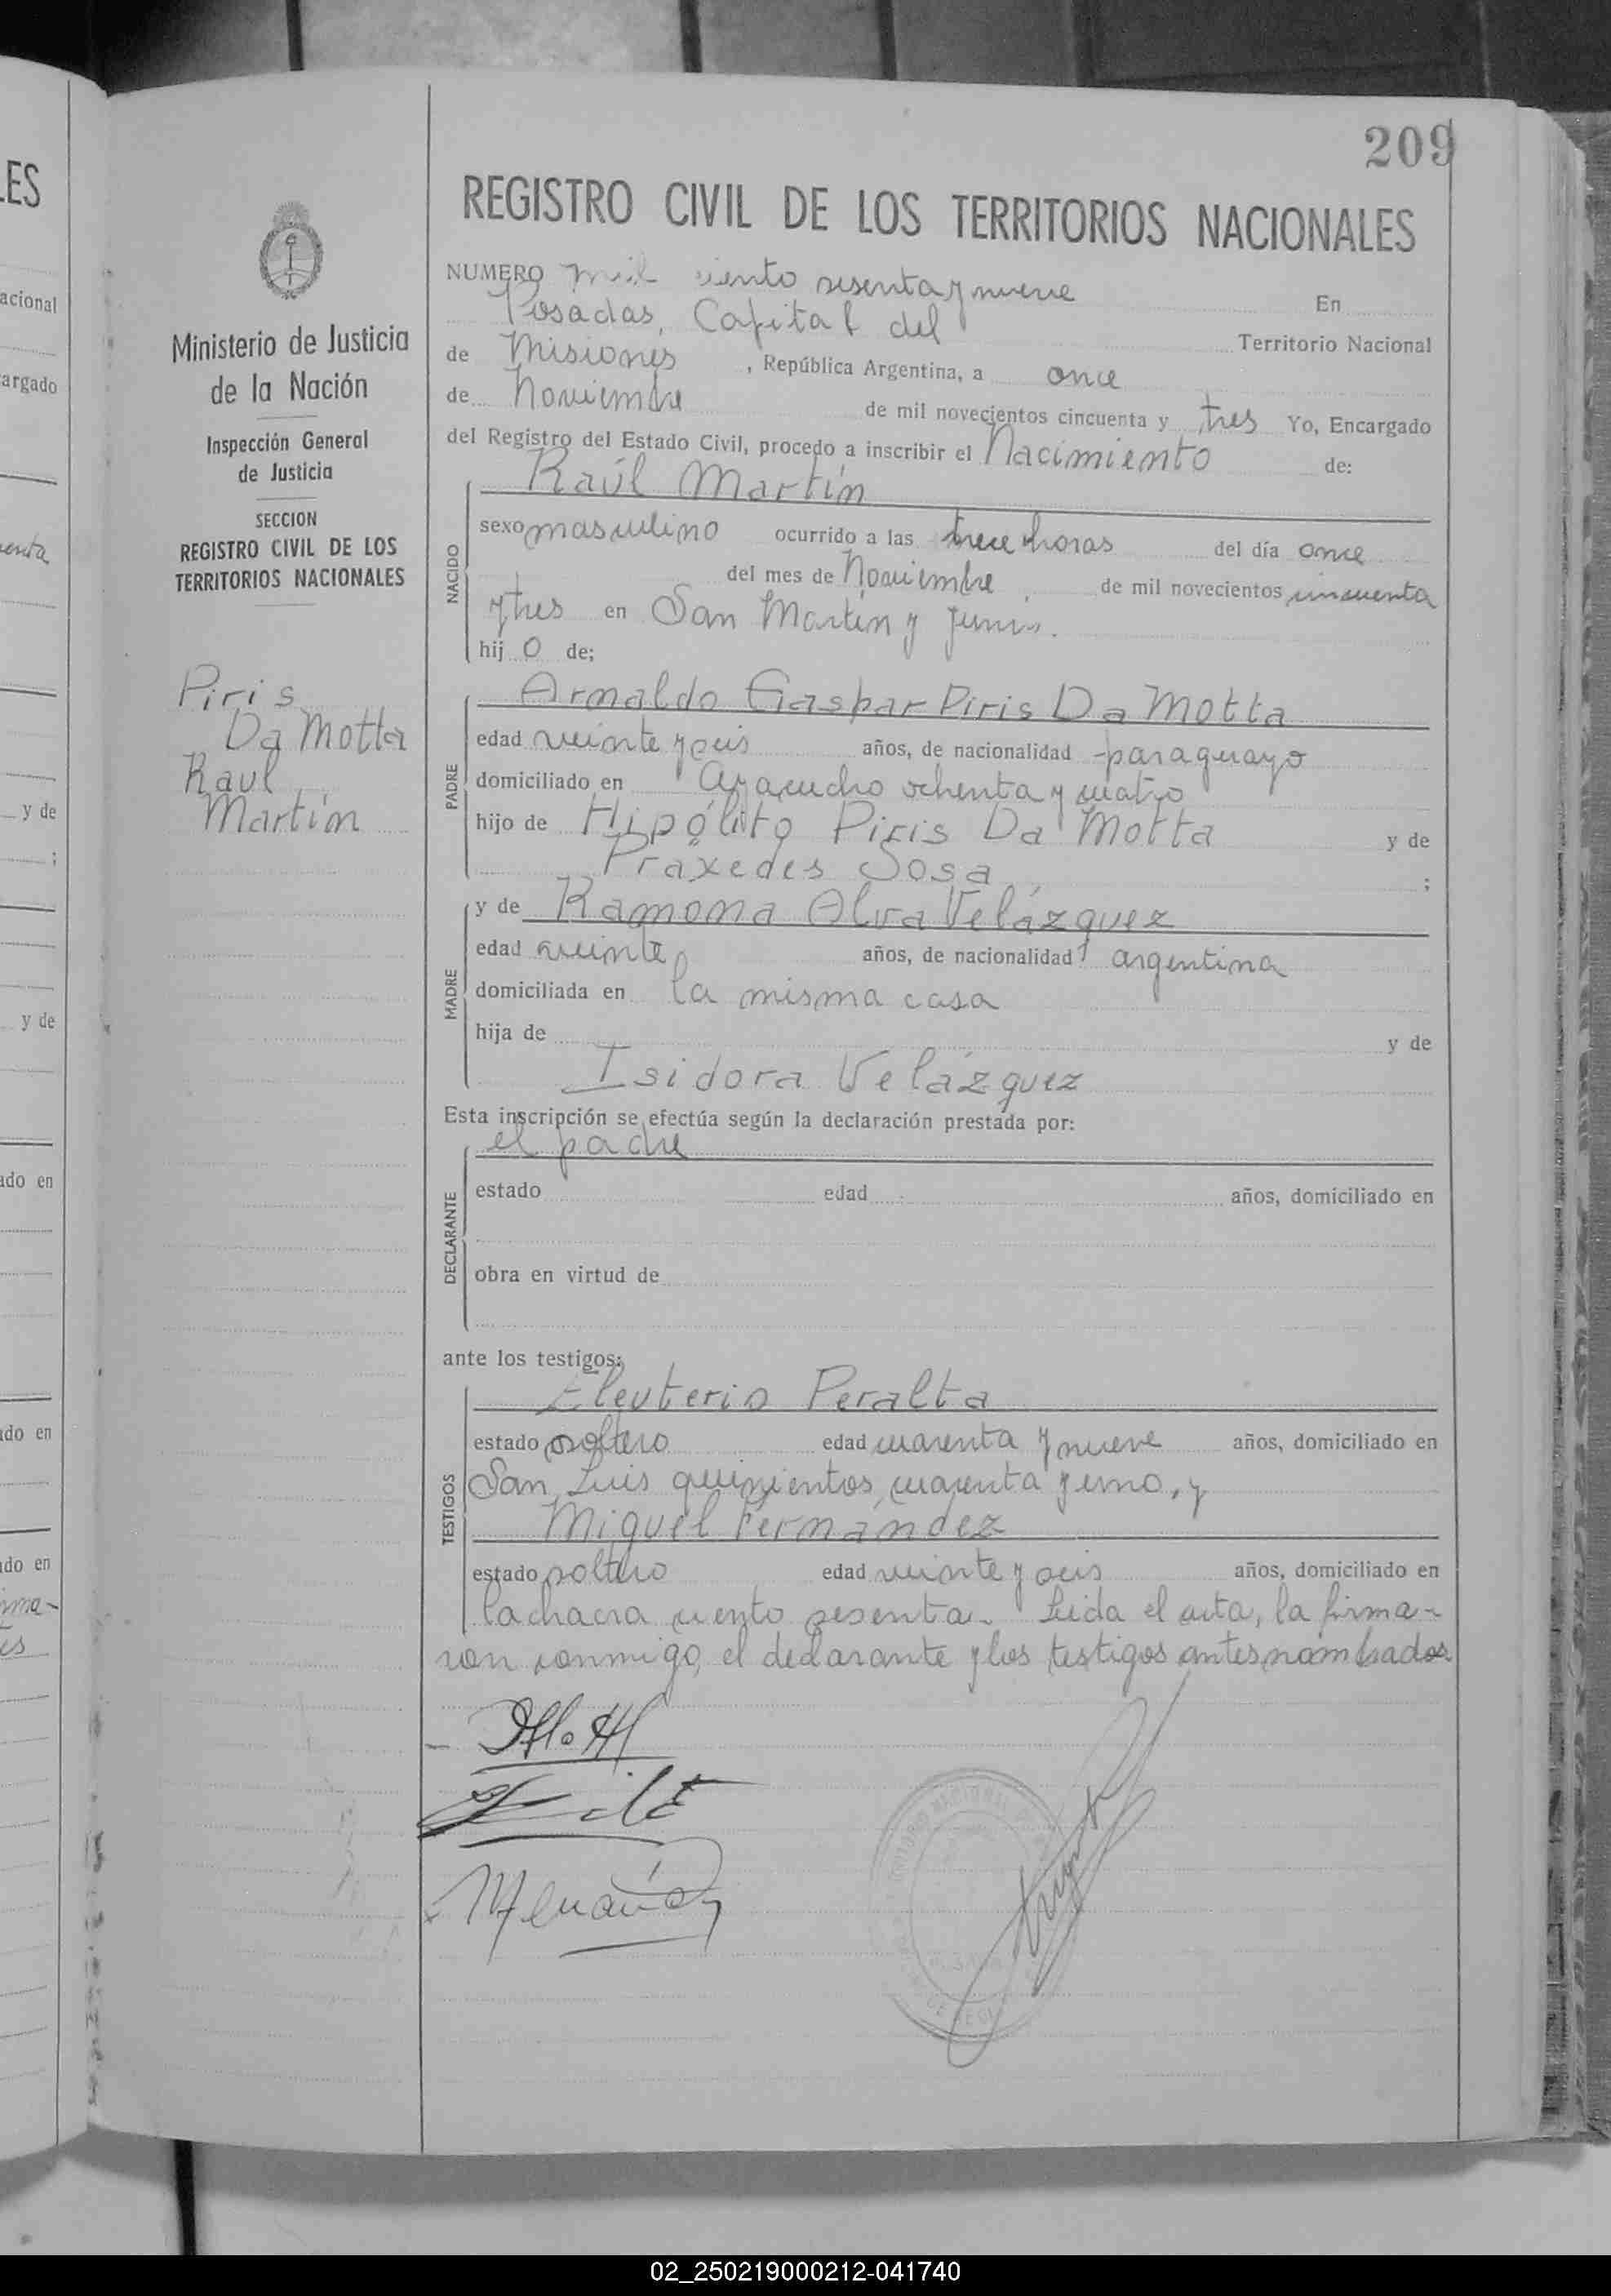 209
REGISTRO CIVIL DE LOS TERRITORIOS NACIONALES
NUMERO mil ciento sesenta y nueve En
Posadas, Capital del Territorio Nacional
de Misiones, República Argentina, a once
de Noviembre de mil novecientos cincuenta y tres Yo, Encargado
del Registro del Estado Civil, procedo a inscribir el Nacimiento de:
Raúl Martín
NACIDO
sexo masculino ocurrido a las trece horas del día once
del mes de Noviembre, de mil novecientos cincuenta
y tres en San Martín y Junín.
hij o de;
PADRE
Arnaldo Gaspar Piris Da Motta
edad veinte y seis años, de nacionalidad paraguayo
domiciliado en Ayacucho ochenta y cuatro
hijo de Hipólito Piris Da Motta y de
Práxedes Sosa ;
MADRE
y de Ramona Alva Velázquez
edad veinte años, de nacionalidad argentina
domiciliada en la misma casa
hija de y de
Isidora Velázquez
Esta inscripción se efectúa según la declaración prestada por:
el padre
DECLARANTE
estado edad años, domiciliado en
obra en virtud de
ante los testigos:
TESTIGOS
Eleuterio Peralta
estado soltero edad cuarenta y nueve años, domiciliado en
San Luis quinientos cuarenta y uno, y
Miguel Fernández
estado soltero edad veinte y seis años, domiciliado en
la chacra ciento sesenta. Leida el acta, la firma-
ron conmigo, el declarante y los testigos antes nombrados
Ministerio de Justicia
de la Nación
Inspección General
de Justicia
SECCION
REGISTRO CIVIL DE LOS
TERRITORIOS NACIONALES
Piris
Da Motta
Raul
Martín
LES
acional
argado
enta
y de
;
y de
ado en
ado en
ado en
02_250219000212-041740